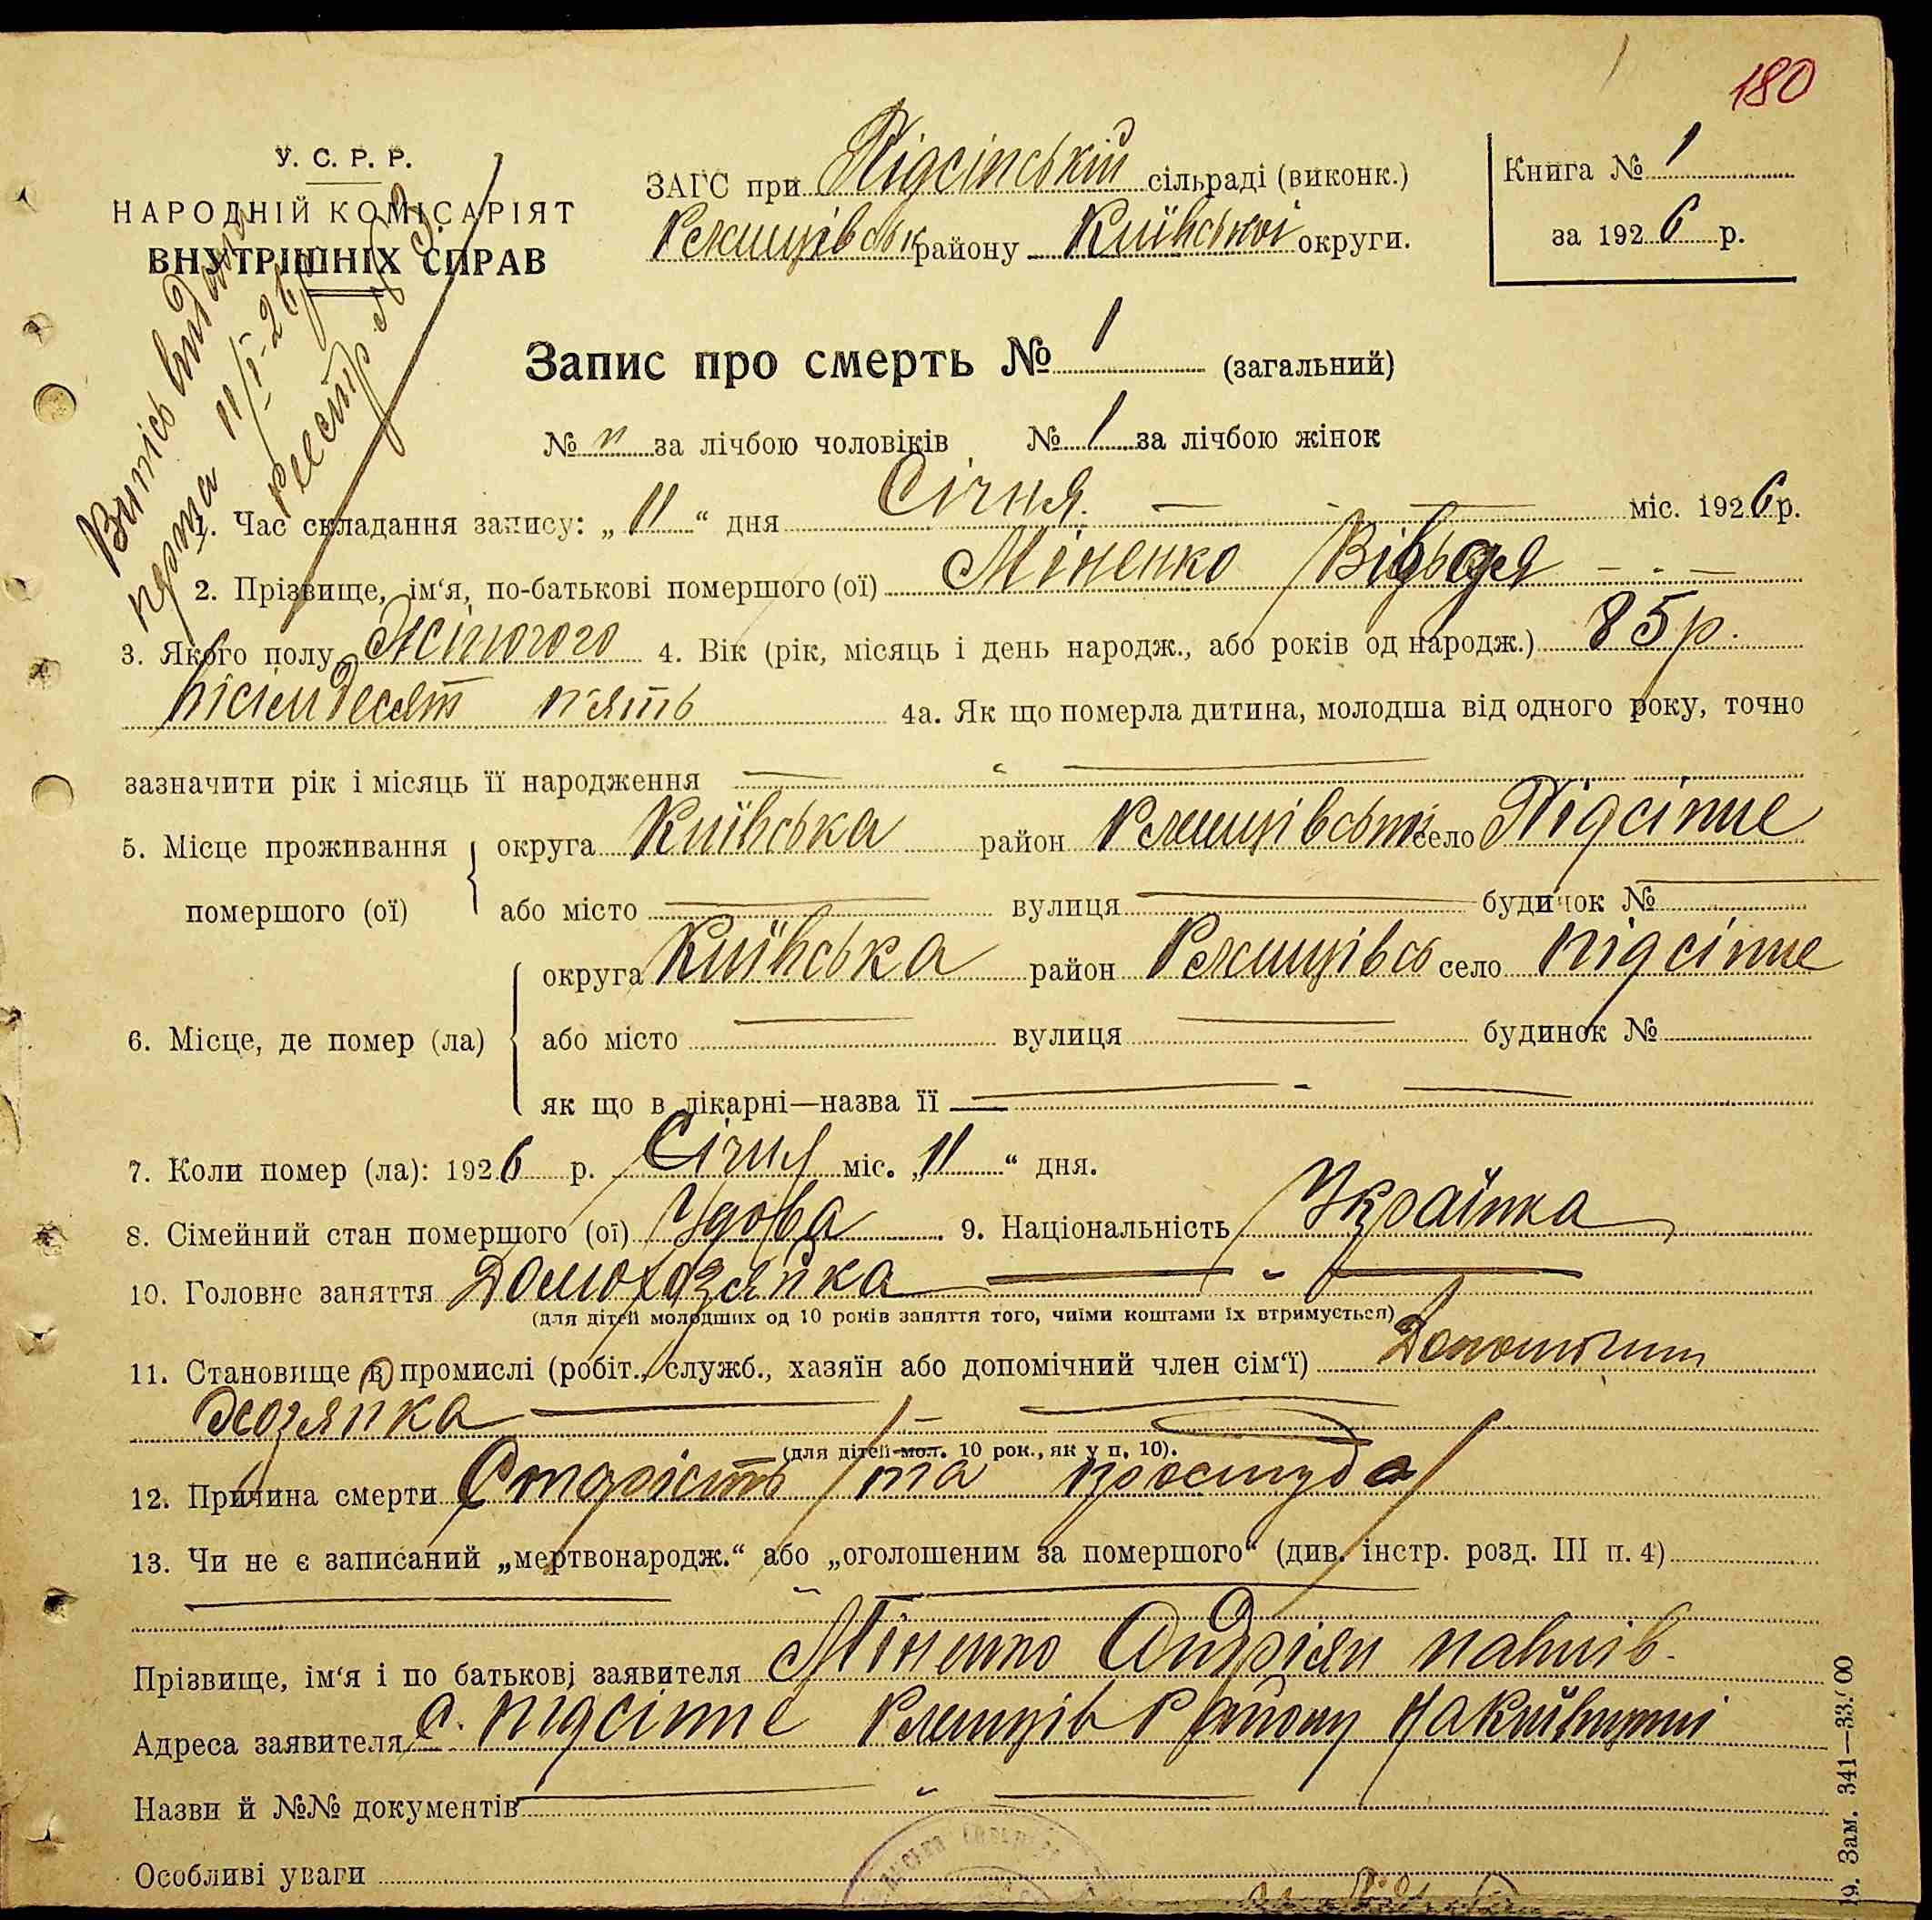 180
У. С. Р. Р.
НАРОДНІЙ КОМІСАРІЯТ
ВНУТРІШНІХ СПРАВ
Випись видана
перша 11/I-26 р
реєстр № 3
ЗАГС при Підсінській сільраді (виконк.)
Ржищівськ району Київської округи.
Книга № 1
за 1926 р.
Запис про смерть № 1 (загальний)
№ „ за лічбою чоловіків № 1 за лічбою жінок
1. Час складання запису: „11“ дня Січня міс. 1926 р.
2. Прізвище, ім‘я, по-батькові помершого (ої) Міненко
3. Якого полу Жіночого 4. Вік (рік, місяць і день народж., або років од народж.) 85 р.
вісімдесят п‘ять 4а. Як що померла дитина, молодша від одного року, точно
зазначити рік і місяць її народження
5. Місце проживання округа Київська район Ржищівський село Підсінне
помершого (ої) або місто вулиця будинок №
округа Київська район Ржищівсь село Підсінне
6. Місце, де помер (ла) або місто вулиця будинок №
як що в лікарні—назва її
7. Коли помер (ла): 1926 р. Січня міс. „11“ дня.
8. Сімейний стан помершого (ої) Удова. 9. Національність Українка
10. Головне заняття Домохозяйка
(для дітей молодших од 10 років заняття того, чиїми коштами їх втримується)
11. Становище в промислі (робіт., служб., хазяїн або допомічний член сім‘ї)
хозяйка
(для дітей мол. 10 рок., як у п. 10).
12. Причина смерти Старість та простуда
13. Чи не є записаний „мертвонародж.“ або „оголошеним за помершого“ (див. інстр. розд. III п. 4)
Прізвище, ім‘я і по батькові заявителя Міненко Андріян
Адреса заявителя с. Підсінне Ржищів Району на Київщині
Назви й №№ документів
Особливі уваги
Зам. 341—33.